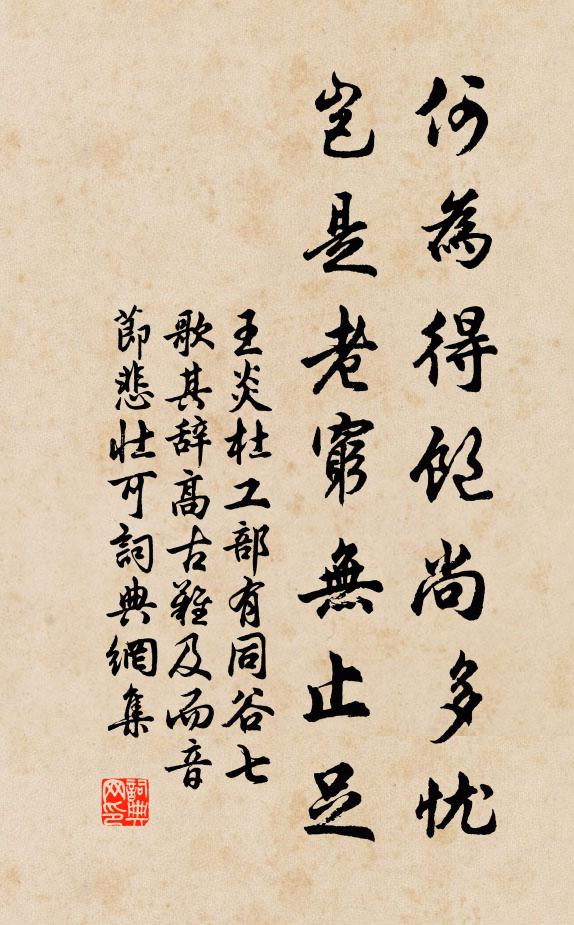 何為得飽尚多忧
豈是老窮無止足
王炎杜工部有同谷七
歌其辞高古難及而音
節悲壮可詞典網集
詞典网印